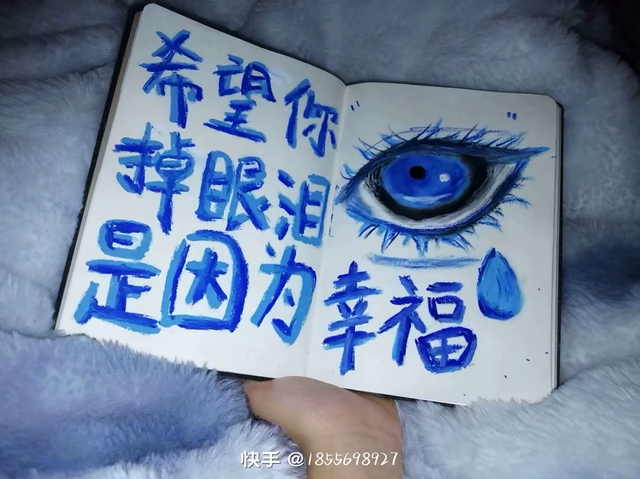 希望你
掉眼泪
是因为幸福
快手 @1855698927